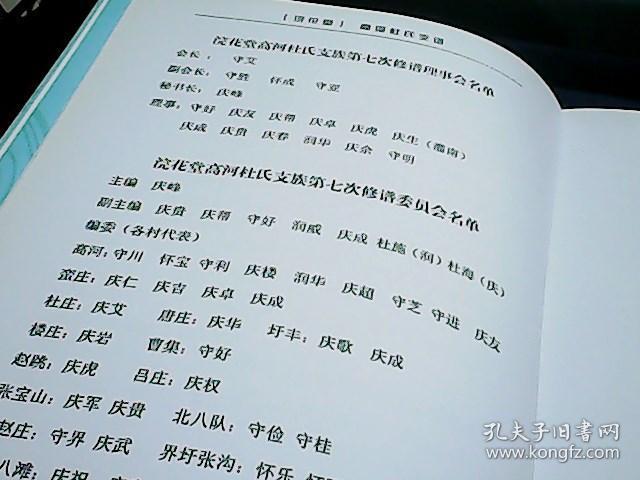 [浣花堂] 高河杜氏支谱
浣花堂高河杜氏支族第七次修谱理事会名单
会长： 守艾
副会长： 守胜 怀成 守罡
秘书长： 庆峰
理事：守好 庆友 庆帮 庆卓 庆虎 庆生（淮南）
庆成 庆贵 庆春 润华 庆余 守明
浣花堂高河杜氏支族第七次修谱委员会名单
主编 庆峰
副主编 庆贵 庆帮 守好 润威 庆成 杜施（润）杜海（庆）
编委（各村代表）
高河：守川 怀宝 守利 庆楼 润华 庆超 守芝 守进 庆友
庄：庆仁 庆吉 庆卓 庆成
杜庄：庆艾 唐庄：庆华 圩丰：庆歌 庆成
楼庄：庆岩 曹集：守好
赵跳：庆虎 吕庄：庆权
张宝山：庆军 庆贵 北八队：守俭 守桂
赵庄：守界 庆武 界圩张沟：怀乐
八滩：庆祝
孔夫子旧书网